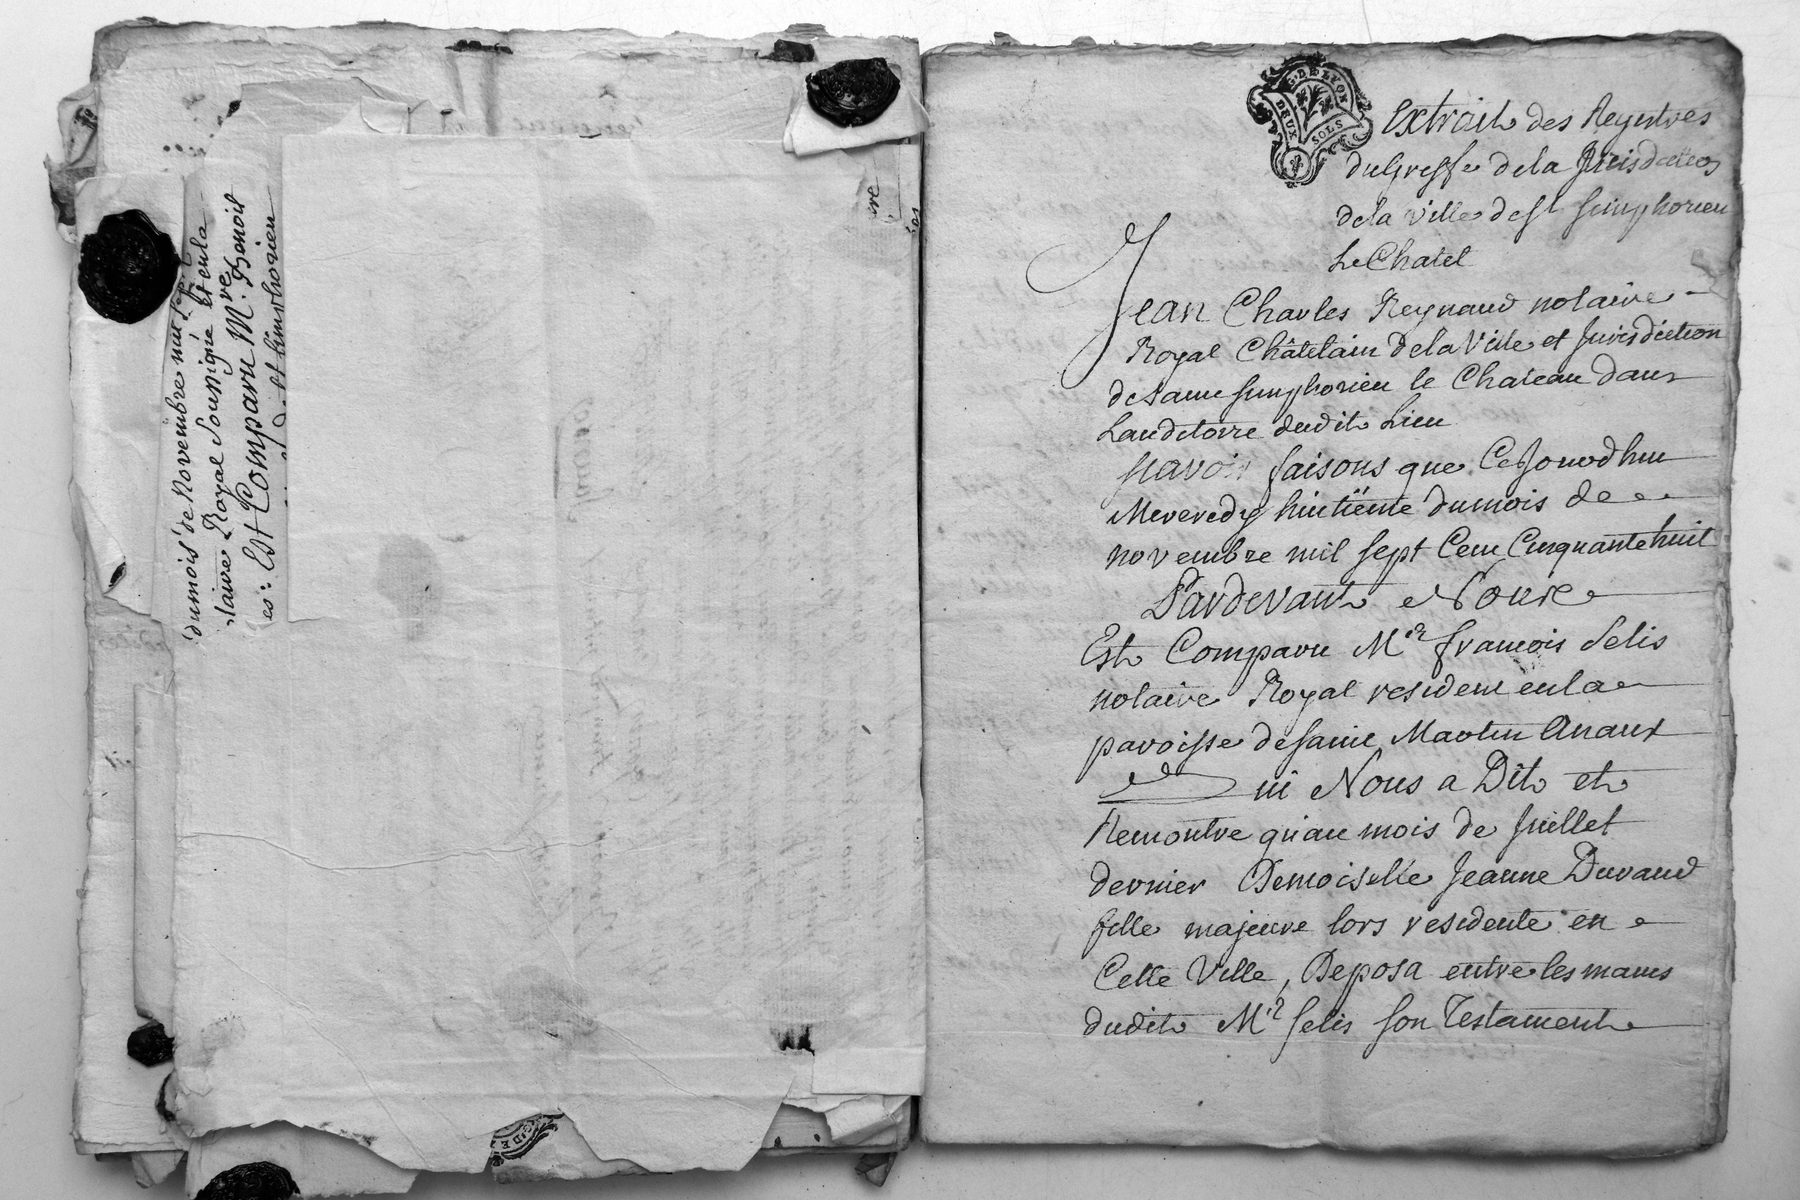 dumois de Novembre mil sept
-laire Royal Soussigné et en la
es: Est Comparu M.re Benoit
st simphorien
G. DE LYON
DEUX SOLS
Extrait des Regystres
du Greffe de la Jurisdiction
de la Ville de St simphorien
Le Chatel
Jean Charles Reynaud notaire
Royal Châtelain de la Ville et Jurisdiction
de saint simphorien le Chateau dans
Lauditoire dudit Lieu
scavoir faisons que Cejourdhuy
Mercredy huitième du mois de
novembre mil sept Cent Cinquante huit
Pardevant Nous
Est Comparu Me françois selis
notaire Royal resident en la
paroisse de saint Martin
Qui Nous a Dit et
Remontre quau mois de Juillet
dernier Demoiselle Jeanne Durand
fille majeure lors residente en
Cette Ville, Deposa entre les mains
dudit Me selis son Testament
G. DE